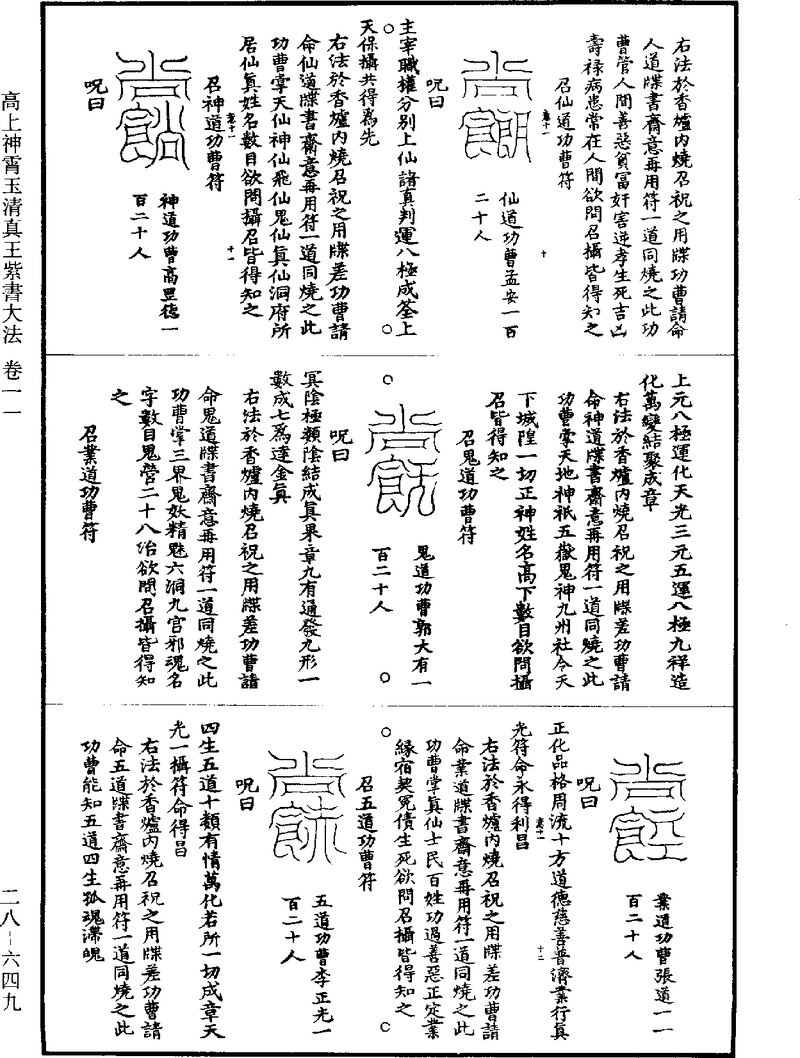 右法於香爐內燒召祝之用牒功曹請命
人道牒書齋意再用符一道同燒之此功
曹管人間善惡貧富奸害逆孝生死吉凶
壽祿病患常在人間欲問召攝皆得知之
召仙道功曹符
仙道功曹孟安一百
二十人
呪曰
主宰職權分別上仙諸真判運八極成筌上
天保攝共得為先
右法於香爐內燒召祝之用牒差功曹請
命仙道牒書齋意再用符一道同燒之此
功曹掌天仙神仙飛仙鬼仙真仙洞府所
居仙真姓名數目欲問攝召皆得知之
召神道功曹符
神道功曹高里德一
百二十人
呪曰
上元八極運化天光三元五運八極九祥造
化萬變結聚成章
右法於香爐內燒召祝之用牒差功曹請
命神道牒書齋意再用符一道同燒之此
功曹掌天地神祇五嶽鬼神九州社令天
下城隍一切正神姓名高下數目欲問攝
召皆得知之
召鬼道功曹符
鬼道功曹郭大有一
百二十人
呪曰
冥陰極類陰結成真果章九有通發九形一
數成七為達金真
右法於香爐內燒召祝之用牒差功曹請
命鬼道牒書齋意再用符一道同燒之此
功曹掌三界鬼妖精魅六洞九宮邪魂名
字數目鬼營二十八治欲問召攝皆得知
之
召業道功曹符
業道功曹張道一一
百二十人
呪曰
正化品格周流十方道德慈善普濟業行真
光符命永得利昌
右法於香爐內燒召祝之用牒差功曹請
命業道牒書齋意再用符一道同燒之此
功曹掌真仙士民百姓功過善惡正定業
緣宿契冤債生死欲問召攝皆得知之
召五道功曹符
五道功曹李正光一
百二十人
呪曰
四生五道十類有情萬化若所一切成章天
光一攝符命得昌
右法於香爐內燒召祝之用牒差功曹請
命五道牒書齋意再用符一道同燒之此
功曹能知五道四生孤魂滯魄
高上神霄玉清真王紫書大法 卷一一
二八–六四九